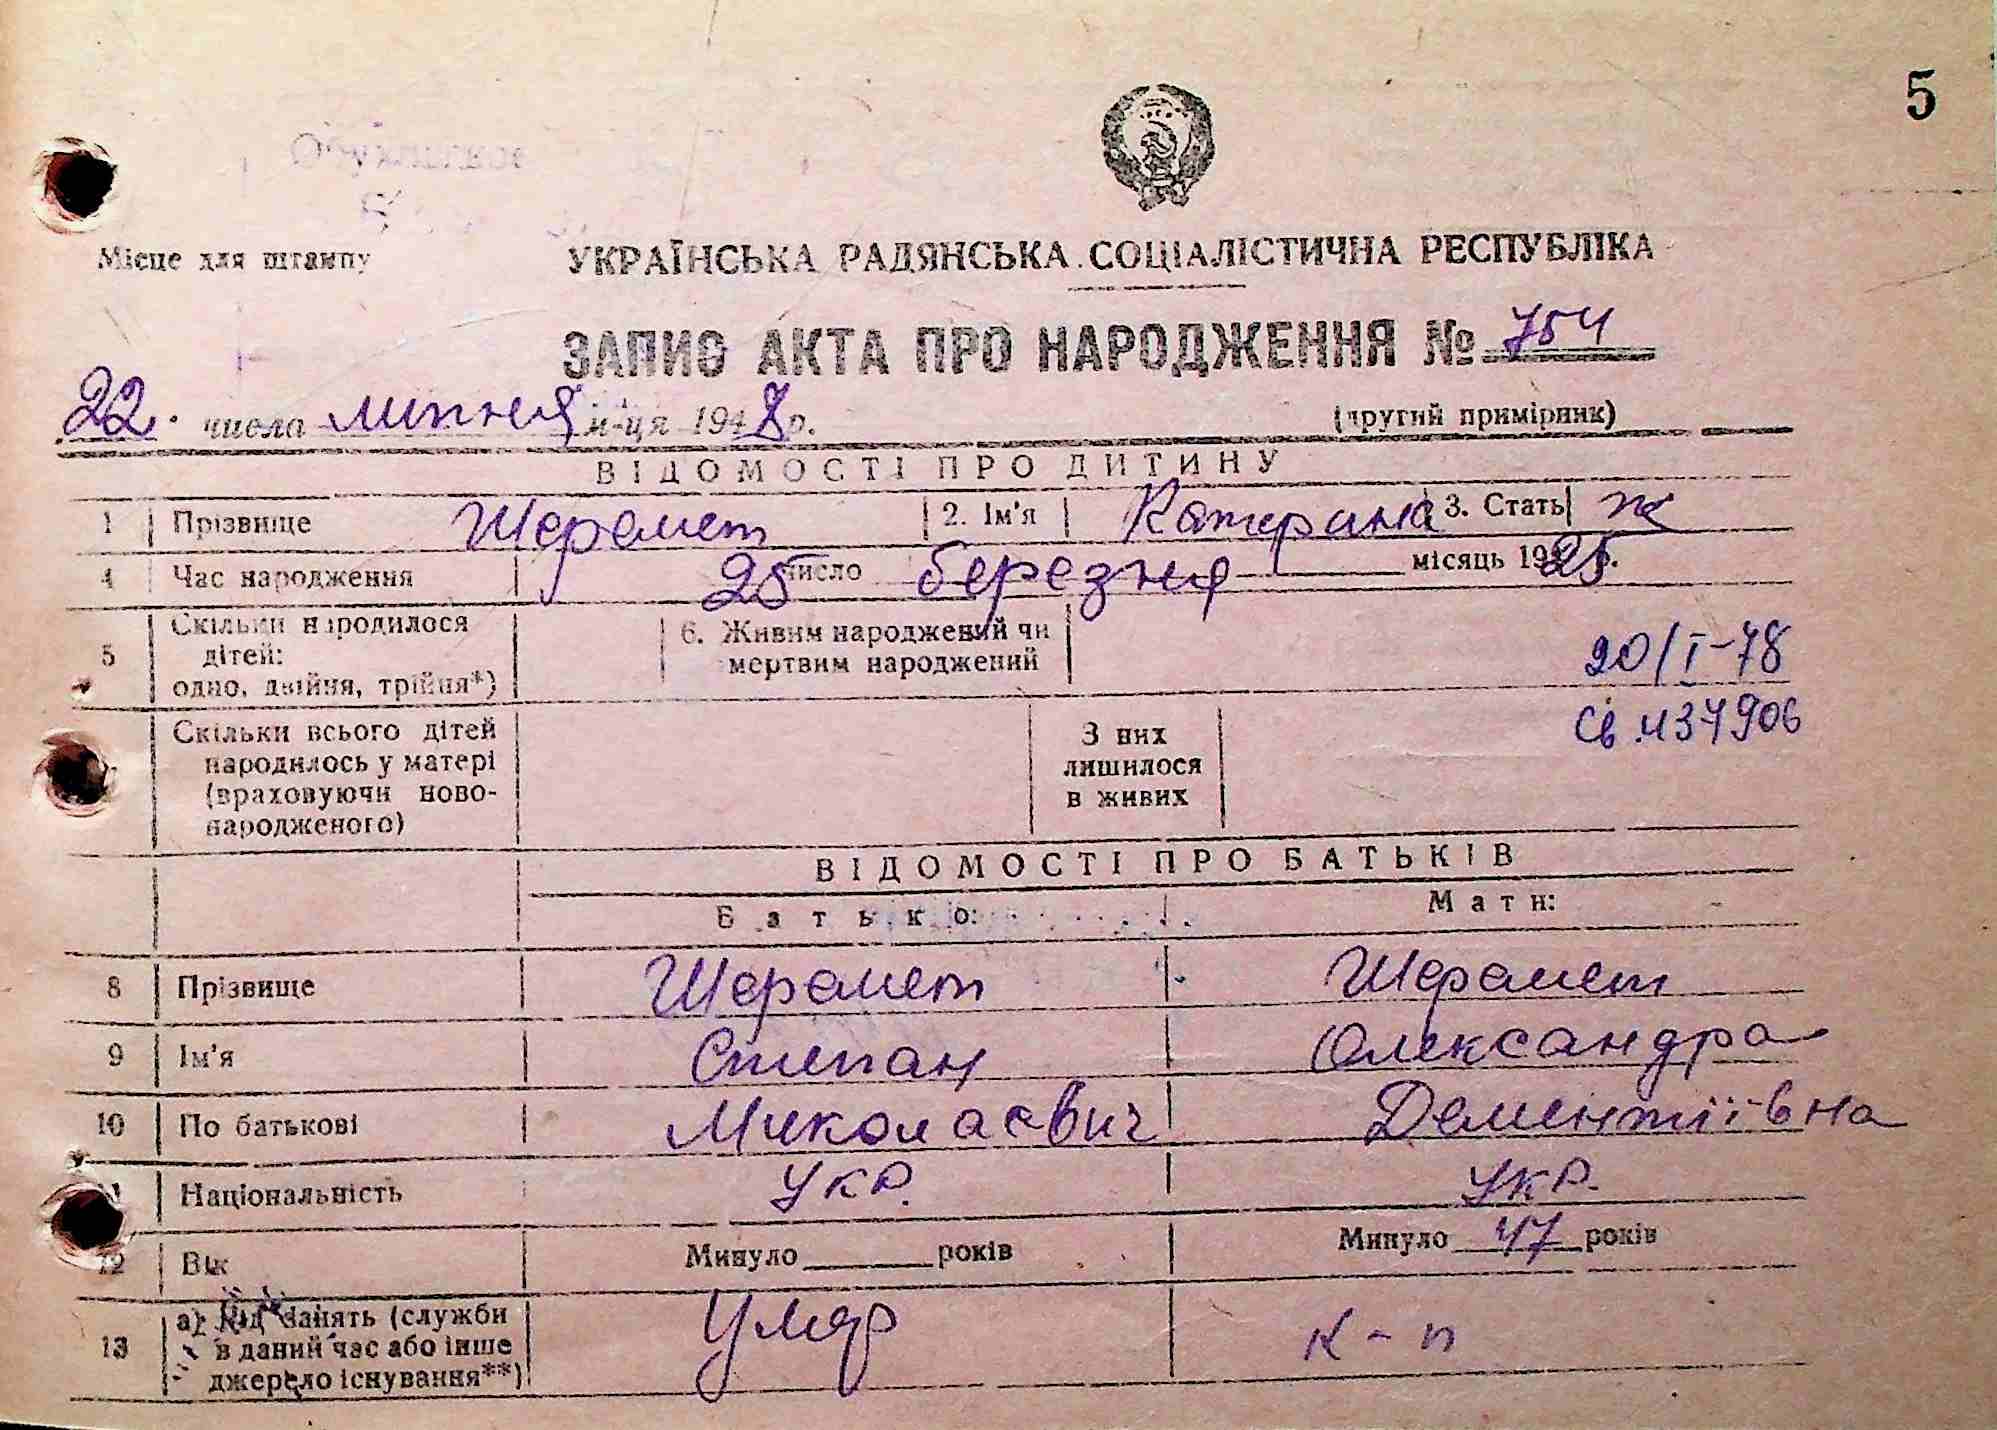 5
Місце для штампу
УКРАЇНСЬКА РАДЯНСЬКА СОЦІАЛІСТИЧНА РЕСПУБЛІКА
ЗАПИС АКТА ПРО НАРОДЖЕННЯ № 754
22. числа липня м-ця 1948 р.
(другий примірник)
ВІДОМОСТІ ПРО ДИТИНУ
1 Прізвище Шеремет 2. Ім'я Катерина 3. Стать ж
4 Час народження 25 число березня місяць 1925 р.
5 Скільки народилося дітей: одно, двійня, трійня*) 6. Живим народжений чи мертвим народжений
20/I-78
Св. 437906
Скільки всього дітей народилось у матері (враховуючи новонародженого) З них лишилося в живих
ВІДОМОСТІ ПРО БАТЬКІВ
Батько: Мати:
8 Прізвище Шеремет Шеремет
9 Ім'я Степан Олександра
10 По батькові Миколаєвич Дементіївна
11 Національність укр. укр.
12 Вік Минуло ______ років Минуло 47 років
13 а) Рід занять (служби в даний час або інше джерело існування**) Умер к-п